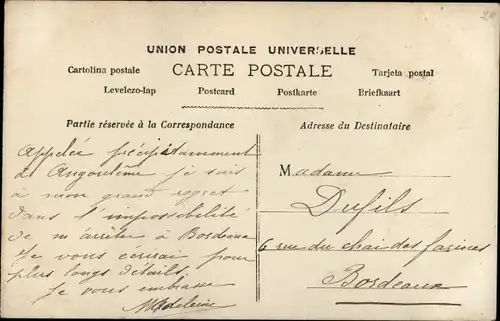 UNION POSTALE UNIVERSELLE
Cartolina postale CARTE POSTALE Tarjeta postal
Levelezo-lap Postcard Postkarte Briefkaart
Partie réservée à la Correspondance
Adresse du Destinataire
Appelée précipitamment
à Angoulême je suis
à mon grand regret
dans l'impossibilité
de m'arrêter à Bordeaux
Je vous écrirai pour
plus longs détails.
Je vous embrasse
Madeleine
Madame
Dufils
6 rue du chai des farines
Bordeaux